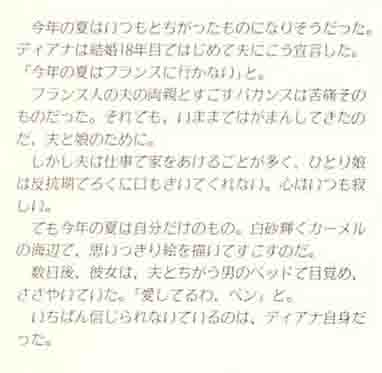 今年の夏はいつもとちがったものになりそうだった。
ディアナは結婚18年目ではじめて夫にこう宣言した。
「今年の夏はフランスに行かない」と。
フランス人の夫の両親とすごすバカンスは苦痛その
ものだった。それでも、いままではがまんしてきたの
だ、夫と娘のために。
しかし夫は仕事で家をあけることが多く、ひとり娘
は反抗期でろくに口もきいてくれない。心はいつも寂
しい。
でも今年の夏は自分だけのもの。白砂輝くカーメル
の海辺で、思いっきり絵を描いてすごすのだ。
数日後、彼女は、夫とちがう男のベッドで目覚め、
ささやいていた。「愛してるわ、ベン」と。
いちばん信じられないでいるのは、ディアナ自身だ
った。